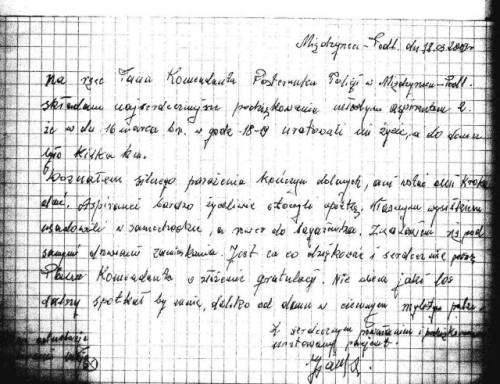 Międzyrzec-Podl. dn 18.03.2009r
na ręce Pana Komendanta Posterunku Policji w Międzyrzecu-Podl.
składam najserdeczniejsze podziękowanie młodym aspirantom 2
że w dn. 16 marca br. w godz. 18-19 uratowali mi życie, a do domu
było kilka km.
Doznałem silnego porażenia kończyn dolnych, ani wołać ani kroku
dać. Aspiranci bardzo życzliwie otoczyli opieką. Własnym wysiłkiem
usadowili w samochodzie, a rower do bagażnika. Znalazłem się pod
samymi drzwiami zamieszkania. Jest za co dziękować i serdecznie proszę
Pana Komendanta o złożenie gratulacji. Nie wiem jaki los
dalszy spotkał by mnie, daleko od domu w ciemnym
Z serdecznym i podziękowaniem
uratowany pacjent.